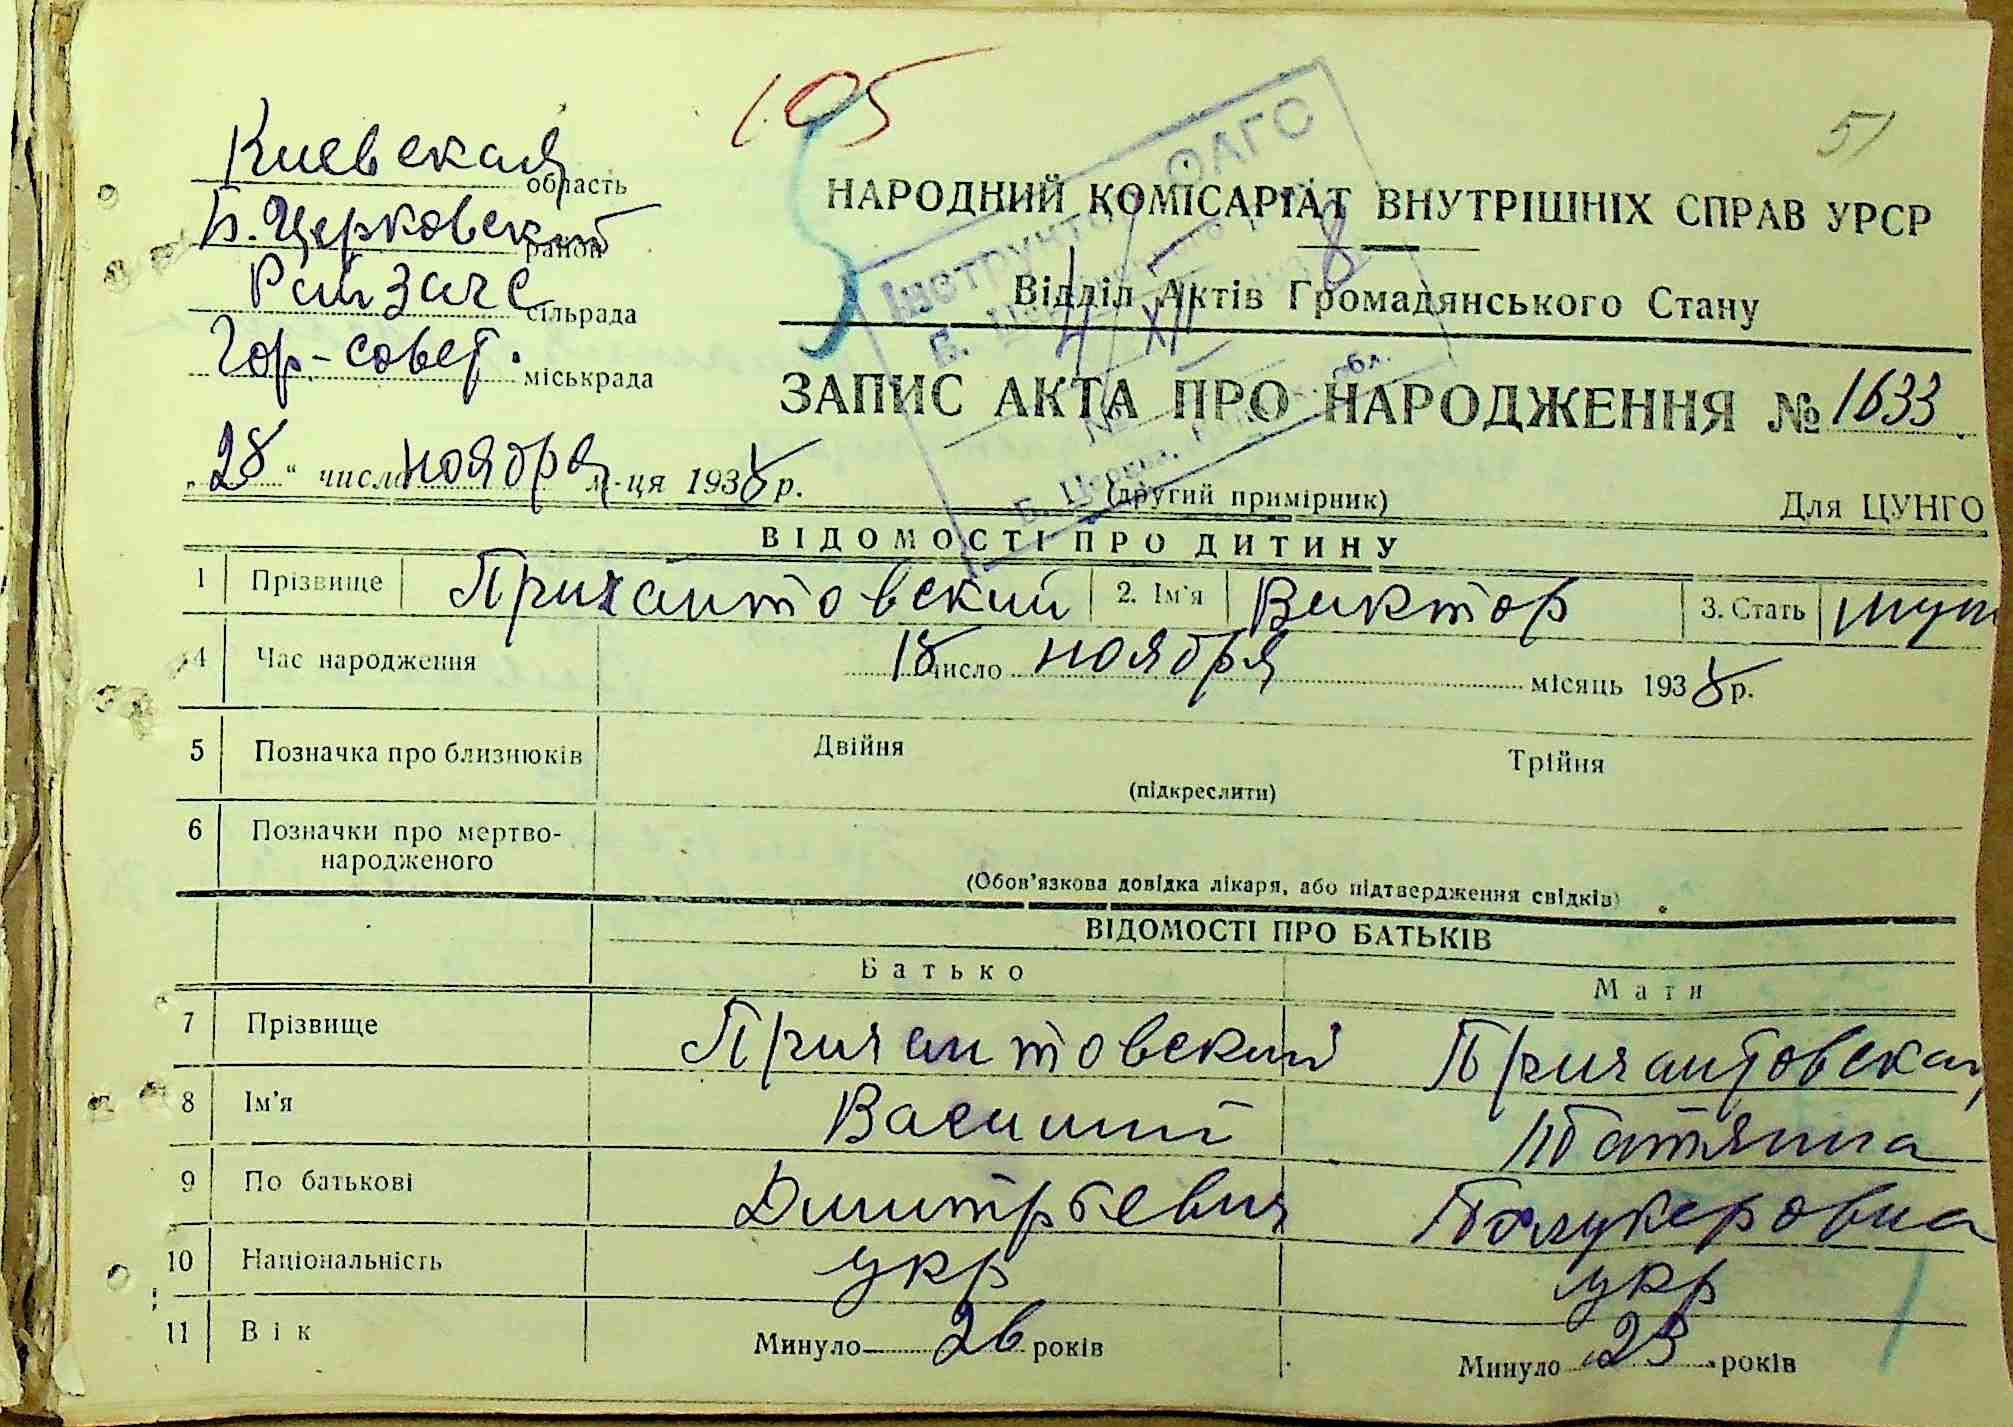 105
51
Киевская область
Б. Церковский район
Райзагс сільрада
Гор-совет. міськрада
НАРОДНИЙ КОМІСАРІАТ ВНУТРІШНІХ СПРАВ УРСР
Відділ Актів Громадянського Стану
ЗАПИС АКТА ПРО НАРОДЖЕННЯ № 1633
„28" число ноября м-ця 1938 р.
(другий примірник)
Для ЦУНГО
ВІДОМОСТІ ПРО ДИТИНУ
1 Прізвище Причантовский 2. Ім'я Виктор 3. Стать муж
4 Час народження 18 число ноября місяць 1938 р.
5 Позначка про близнюків Двійня Трійня
(підкреслити)
6 Позначки про мертво-
народженого
(Обов'язкова довідка лікаря, або підтвердження свідків)
ВІДОМОСТІ ПРО БАТЬКІВ
Батько Мати
7 Прізвище Причантовский Причантовская
8 Ім'я Василий Татяна
9 По батькові Дмитрьевич
10 Національність укр укр
11 Вік Минуло 26 років Минуло 23 років